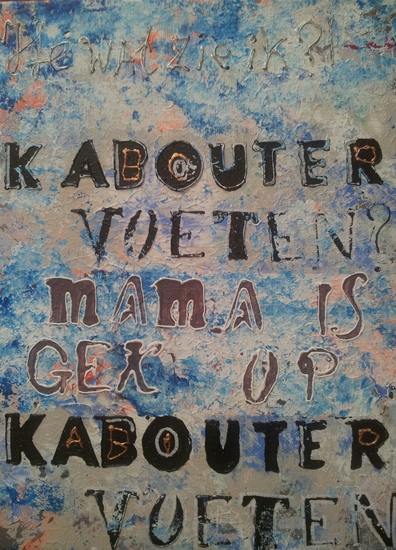 Hé wat zie ik?
KABOUTER
VOETEN?
MAMA IS
GEK OP
KABOUTER
VOETEN